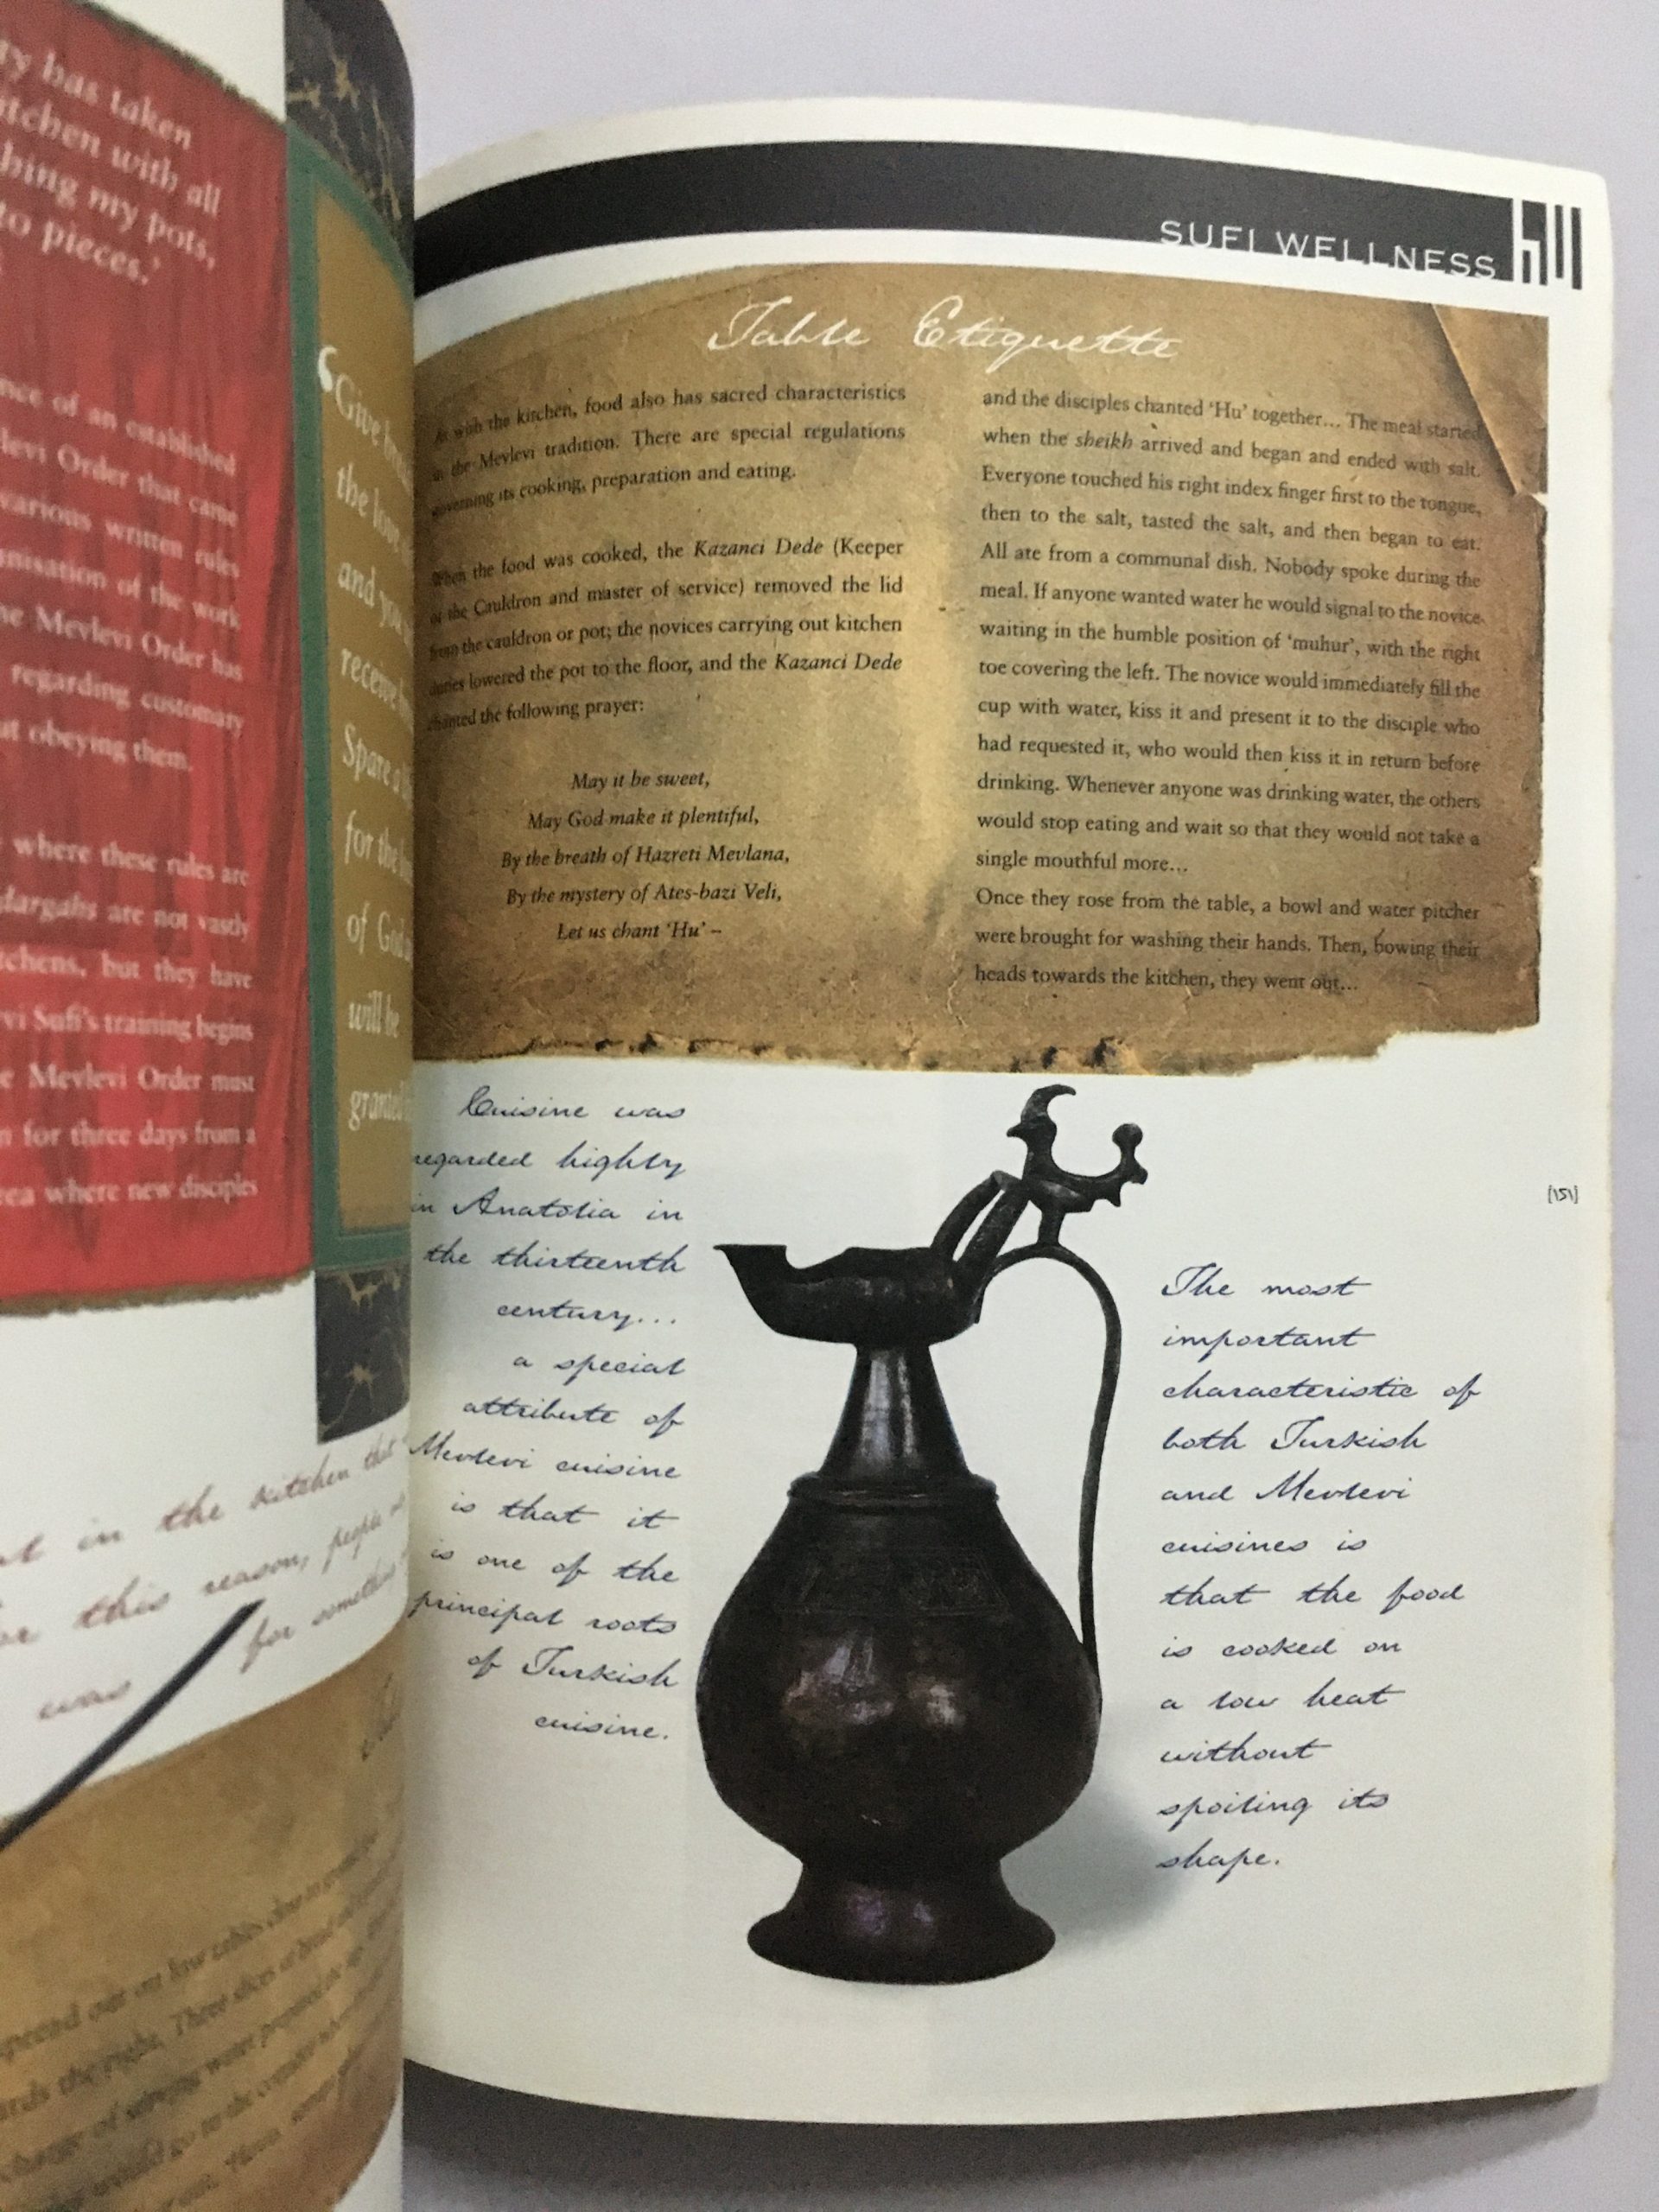 ry has taken
kitchen with all
my pots,
to pieces.'
nce of an established
levi Order that came
various written rules
anisation of the work
he Mevlevi Order has
regarding customary
ut obeying them.
where these rules are
dargahs are not vastly
kitchens, but they have
vi Sufi's training begins
e Mevlevi Order must
n for three days from a
rea where new disciples
in the kitchen that
or this reason, people
for
was
'Give
the
and
receive
Spare a
for the
of God
will be
granted
SUFI WELLNESS hu
Table Etiquette
As with the kitchen, food also has sacred characteristics
in the Mevlevi tradition. There are special regulations
governing its cooking, preparation and eating.
When the food was cooked, the Kazanci Dede (Keeper
of the Cauldron and master of service) removed the lid
from the cauldron or pot; the novices carrying out kitchen
duties lowered the pot to the floor, and the Kazanci Dede
chanted the following prayer:
May it be sweet,
May God make it plentiful,
By the breath of Hazreti Mevlana,
By the mystery of Ates-bazi Veli,
Let us chant 'Hu' –
and the disciples chanted 'Hu' together... The meal started
when the sheikh arrived and began and ended with salt.
Everyone touched his right index finger first to the tongue,
then to the salt, tasted the salt, and then began to eat.
All ate from a communal dish. Nobody spoke during the
meal. If anyone wanted water he would signal to the novice
waiting in the humble position of 'muhur', with the right
toe covering the left. The novice would immediately fill the
cup with water, kiss it and present it to the disciple who
had requested it, who would then kiss it in return before
drinking. Whenever anyone was drinking water, the others
would stop eating and wait so that they would not take a
single mouthful more...
Once they rose from the table, a bowl and water pitcher
were brought for washing their hands. Then, bowing their
heads towards the kitchen, they went out...
Cuisine was
regarded highly
in Anatolia in
the thirteenth
century...
a special
attribute of
Mevlevi cuisine
is that it
is one of the
principal roots
of Turkish
cuisine.
[151]
The most
important
characteristic of
both Turkish
and Mevlevi
cuisines is
that the food
is cooked on
a low heat
without
spoiling its
shape.